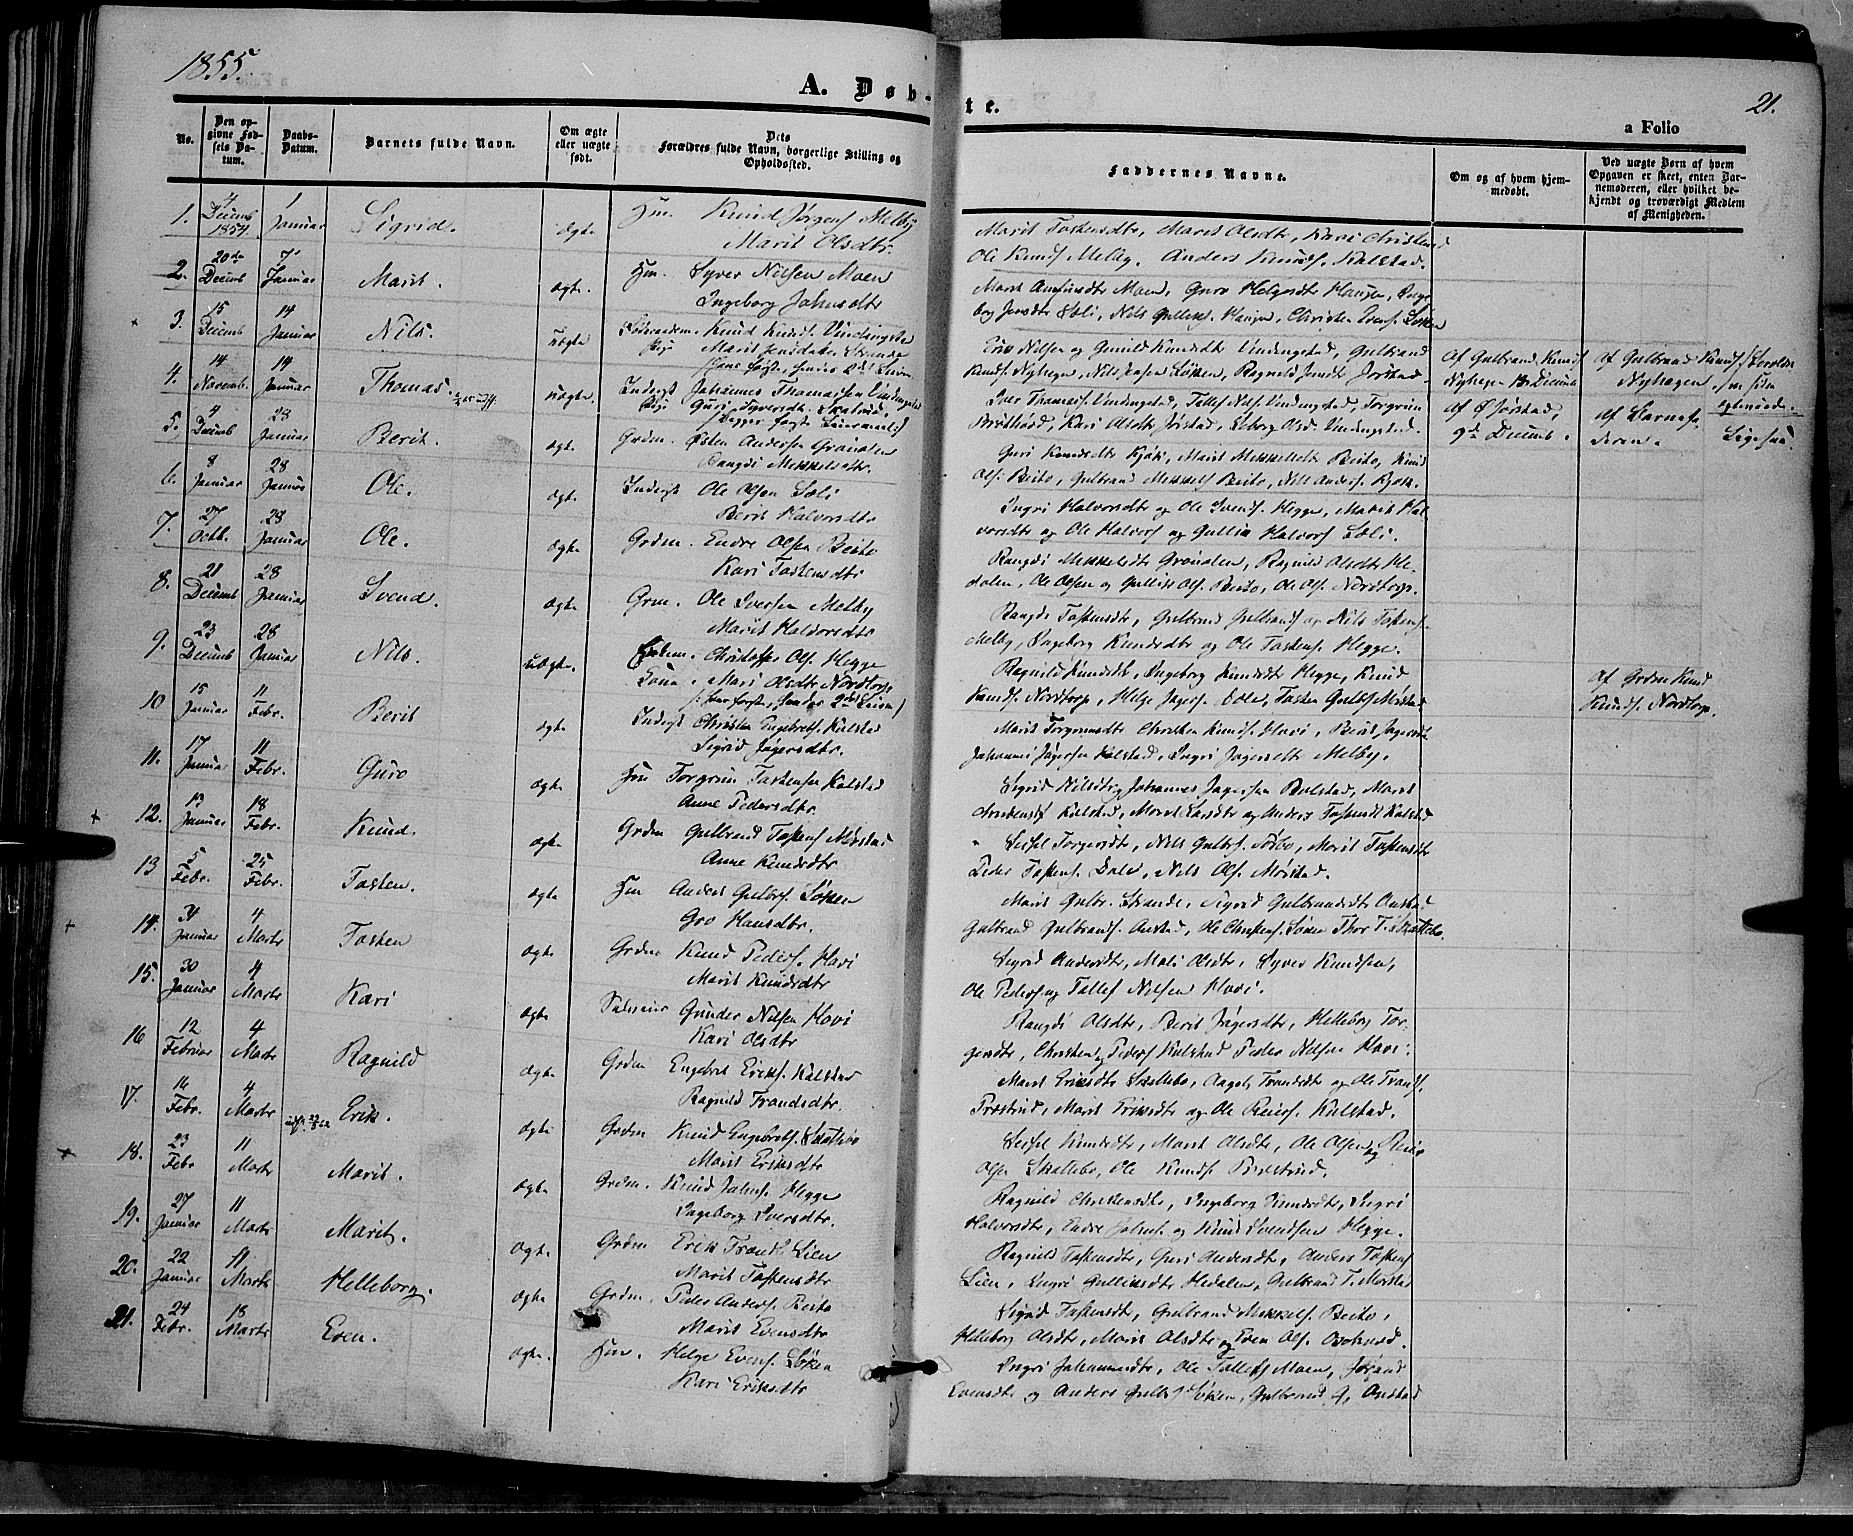 1855.
A. Døb-
te.
21.
a Folio
No.
Den op-
givne Fød-
sels Da-
tum.
Daabs-
Datum.
Barnets fulde Navn.
Om ægte
eller uægte
født.
Dets
Forældres fulde Navn, borgerlige Stilling og
Opholdssted.
Faddernes Navne.
Om og af hvem hjem-
medøbt.
Ved uægte Børn af hvem
Opgaven er skeet, enten Bar-
nemoderen, eller hvilket be-
kjendt og troværdigt Medlem
af Menigheden.
1. 4 Decemb 1854 1 Januar Sigrid. ægte Hm. Knud Jørgens. Melby
Marit Olsdtr.
Marit Tostensdtr, Marit Olsdtr, Kari Christensd
Ole Knuds. Melby, Anders Knuds. Kalstad.
2. 20de Decemb 7 Januar Marit. ægte. Hm. Syver Nilsen Moen
Ingeborg Johnsdtr
Moen, Guro Helgesdtr Haugen, Inge-
borg Jonsdtr Sæli, Nils Gulliks. Haugen, Christen Evens. Løken
3. 15 Decemb 14 Januar Nils. uægte Knud Knuds. Vindingstad
Pige Marit Jensdatter Strande
Gunild Knudsdtr Vindingstad, Gulbrand
Knuds. Nyhagen, Nils Løken, Ragnild
Af Gulbrand Knuds
Nyhagen 18 Decemb
Af Gulbrand Knuds.
Nyhagen
4. 14 Novemb. 14 Januar Thomas. uægte. Inderst Johannes Thomassen Vindingstad
Pige Guri Syversdtr. Skatrud,
Begges første Leiermaal
Iver Thomas. Vindingstad, Tollef Nils. Vindingstad, Torgrim
Kari Olsdtr Jørstad, Vindingstad.
af Ø Jørstad,
9de Decemb.
af Barnefa-
deren.
Ligesaa
5. 4 Decemb 28 Januar Berit. ægte Grdm. Østen Andersen Grønolen
Rangdi Mikkelsdtr.
Guri Knudsdtr Kjøk, Marit Mikkelsdtr Beito, Knud
Ols. Beito, Gulbrand Mikkels. Beito, Nils Anders. Kjøk.
6. 8 Januar 28 Januar Ole. ægte Inderst Ole Olsen Sæli
Berit Halvorsdtr
Ingri Halvorsdtr og Ole Svends. Hegge, Marit Hal-
vorsdtr og Ole Halvors. og Gullik Halvors. Sæli.
7. 27 Octb. 28 Januar Ole. ægte Grdm. Endre Olsen Beito
Kari Tostensdtr
Rangdi Mikkelsdtr Grønolen, Ragnild Olsdtr He-
dalen, Ole Olsen og Gullik Ols. Beito, Ole Ols. Nordtorp.
8. 21 Decemb 28 Januar Svend. ægte Grm. Ole Iversen Melby
Marit Halvorsdtr
Rangdi Tostensdtr, Gulbrand Gulbrands. og Nils Tostens.
Melby, Ingeborg Knudsdtr og Ole Tostens. Hegge.
9. 23 Decemb 28 Januar Nils. uægte. Christoffer Ols. Hegge
Mari Olsdtr Nordtorp
Ragnild Knudsdtr, Ingeborg Knudsdtr Hegge, Knud
Knuds. Nordtorp, Helge Dale, Tosten Gulbs. Mørstad
Af Grdm Knud
Knuds. Nordtorp.
10 15 Januar 11 Febr. Berit ægte Inderst Christen Engebrets. Kalstad
Sigrid Jøgersdtr.
Marit Torgrimsdtr, Christen Knuds. Hovi, Berit Jøgersdtr
Johannes Jøgersen Kalstad, Ingri Jøgersdtr Melby.
11. 17 Januar 11 Febr. Guro ægte Hm Torgrim Tostensen Kalstad
Anne Pedersdtr.
Sigrid Johannes Jøgersen Bolstad, Marit
Kalstad, Marit og Anders Tostens. Kalstad
12. 13 Januar 18 Febr. Knud. ægte Grdm Gulbrand Tostens. Mørstad
Anne Knudsdtr
Torgersdtr, Nils Gulbs. Marit Tostensdtr
Peder Tostens. Dale, Nils Ols. Mørstad.
13 5 Febr. 25 Febr. Tosten. ægte Hm Anders Gulbrs. Løken
Gro Hansdtr.
Marit Gulbr. Strande, Sigrid Gulbrandsdtr Onstad
Gulbrand Gulbrands. Onstad, Ole Christens. Løken Thor T. Skattebo.
14. 31 Januar 4 Marts Tosten ægte Grdm Knud Peders. Hovi
Marit Knudsdtr
Sigrid Andersdtr, Mali Olsdtr, Syver Knudsen,
Ole Peders. og Tollef Nilsen Hovi.
15. 30 Januar 4 Marts Kari ægte Gunder Nilsen Hovi
Kari Olsdtr
Rangdi Olsdtr, Berit Jøgersdtr, Helleborg Tor-
gersdtr, Christen Peders. Kalstad Peder Nilsen Hovi.
16 12 Februar 4 Marts Ragnild ægte Grdm Engebret Eriks. Kalstad
Ragnild Trondsdtr.
Marit Eriksdtr Skattebo, Trondsdtr og Ole Tronds.
Marit Eriksdtr og Ole Kalstad.
17. 16 Febr. 4 Marts Erik. ægte Grdm Knud Engebrets. Skattebo
Marit Eriksdtr
Knudsdtr, Marit Olsdtr, Ole Olsen og
Olsen Skattebo, Ole Knuds.
18. 23 Febr 11 Marts Marit. ægte Grdm. Knud Johns. Hegge
Ingeborg Iversdtr.
Ragnild Christensdtr, Ingeborg Knudsdtr, Ingri
Halvorsdtr, Endre Johns. og Knud Svendsen Hegge.
19. 27 Januar 11 Marts Marit. ægte Grdm Erik Tronds. Lien
Marit Tostensdtr
Ragnild Tostensdtr, Guri Andersdtr, Anders Tostens
Lien, Ingri Gulliksdtr Hedalen, Gulbrand T. Mørstad
20. 22 Januar 11 Marts Helleborg. ægte Grdm. Peder Anders. Beito
Marit Evensdtr
Sigrid Tostensdtr, Gulbrand Mikkels. Beito,
Helleborg Olsdtr, Marit Olsdtr og Even Ols.
21. 24 Febr. 18 Marts Even. ægte. Hm. Helge Evens. Løken
Kari Eriksdtr
Ingri Johannesdtr, Ole Tollefs. Moen, Jørand
Evensdtr og Anders Gulbs. Løken, Gulbrand G. Onstad